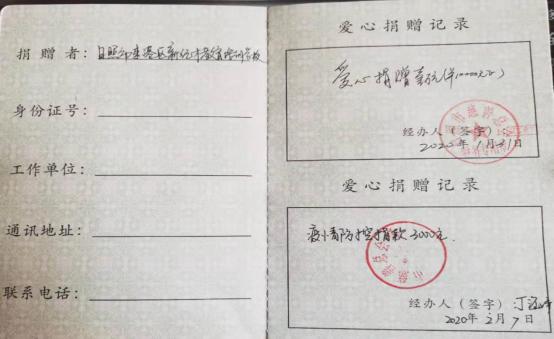 捐赠者：日照市东港区新纪才教育培训学校
身份证号：
工作单位：
通讯地址：
联系电话：
爱心捐赠记录
爱心捐赠壹万元(¥10000元)
经办人（签字）
2020年1月31日
爱心捐赠记录
疫情防控捐款3000元.
经办人（签字）丁
2020年2月7日